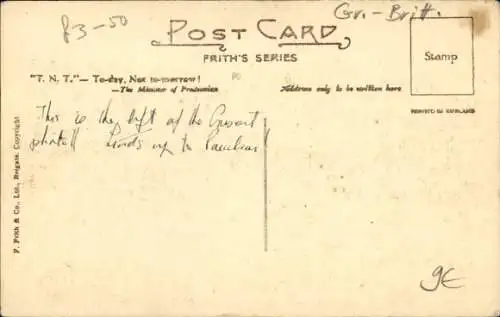 £3-50
Gr.-Britt.
POST CARD
FRITH'S SERIES
Stamp
"T. N. T."— To-day, Not to-morrow!
—The Minister of Production
Address only to be written here
PRINTED IN ENGLAND
This is the left of the
up to
F. Frith & Co., Ltd., Reigate. Copyright
9€